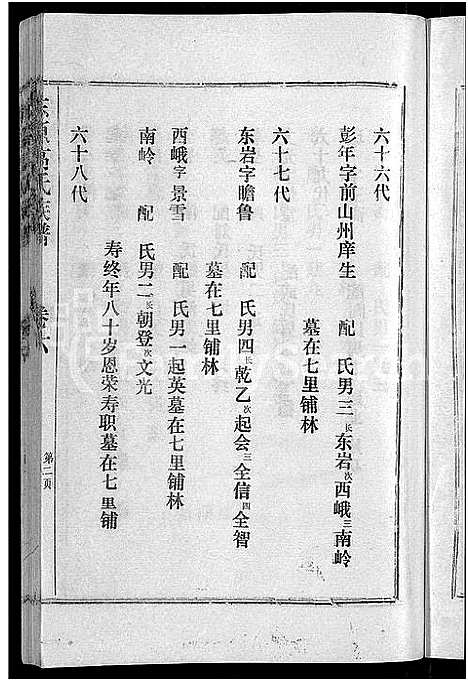 六十六代
彭年字前山州庠生 配 氏男三长东岩次西峨三南岭
墓在七里铺林
六十七代
东岩字瞻鲁 配 氏男四长乾乙次起会三全信四全智
墓在七里铺林
西峨字景雪 配 氏男一起英墓在七里铺林
南岭 配 氏男二长朝登次文光
寿终年八十岁恩荣寿职墓在七里铺
六十八代
氏族谱 卷六
第二页